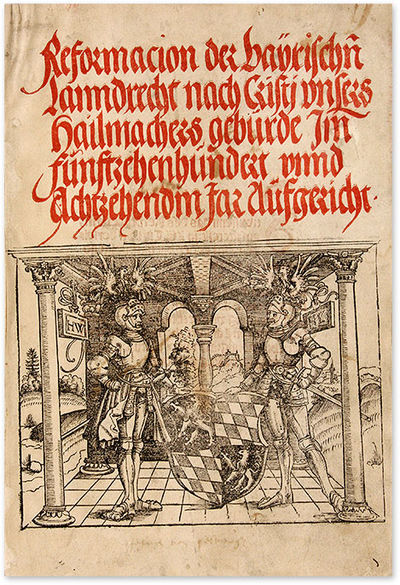 Reformacion der bayrischñ
lanndrecht nach Cristj vnsers
Hailmachers geburde Jm
fünftzehenhundert vnnd
Achtzehendm Jar Aufgericht.
HW
HW